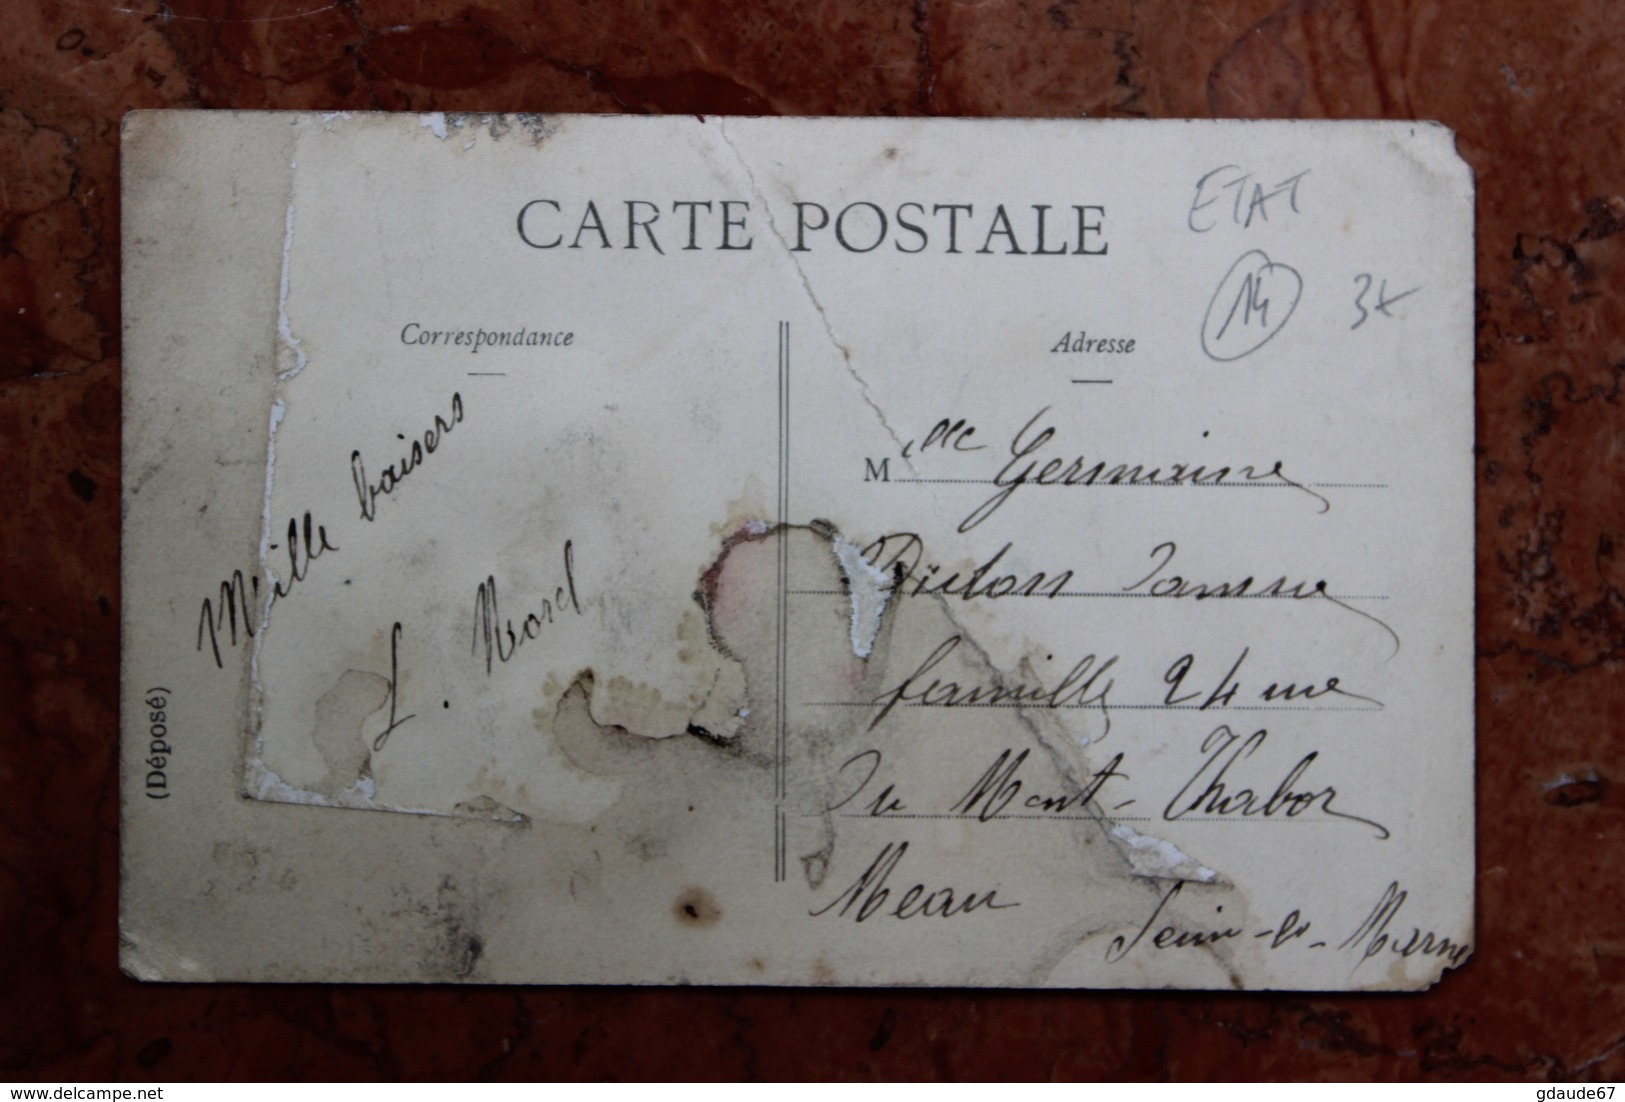 CARTE POSTALE
ETAT
14
3€
Correspondance
Adresse
Mille baisers
L. Nord
Mlle Germaine
famille 24 rue
Du Mont-Thabor
Meau
Seine-et-Marne
(Déposé)
www.delcampe.net
gdaude67